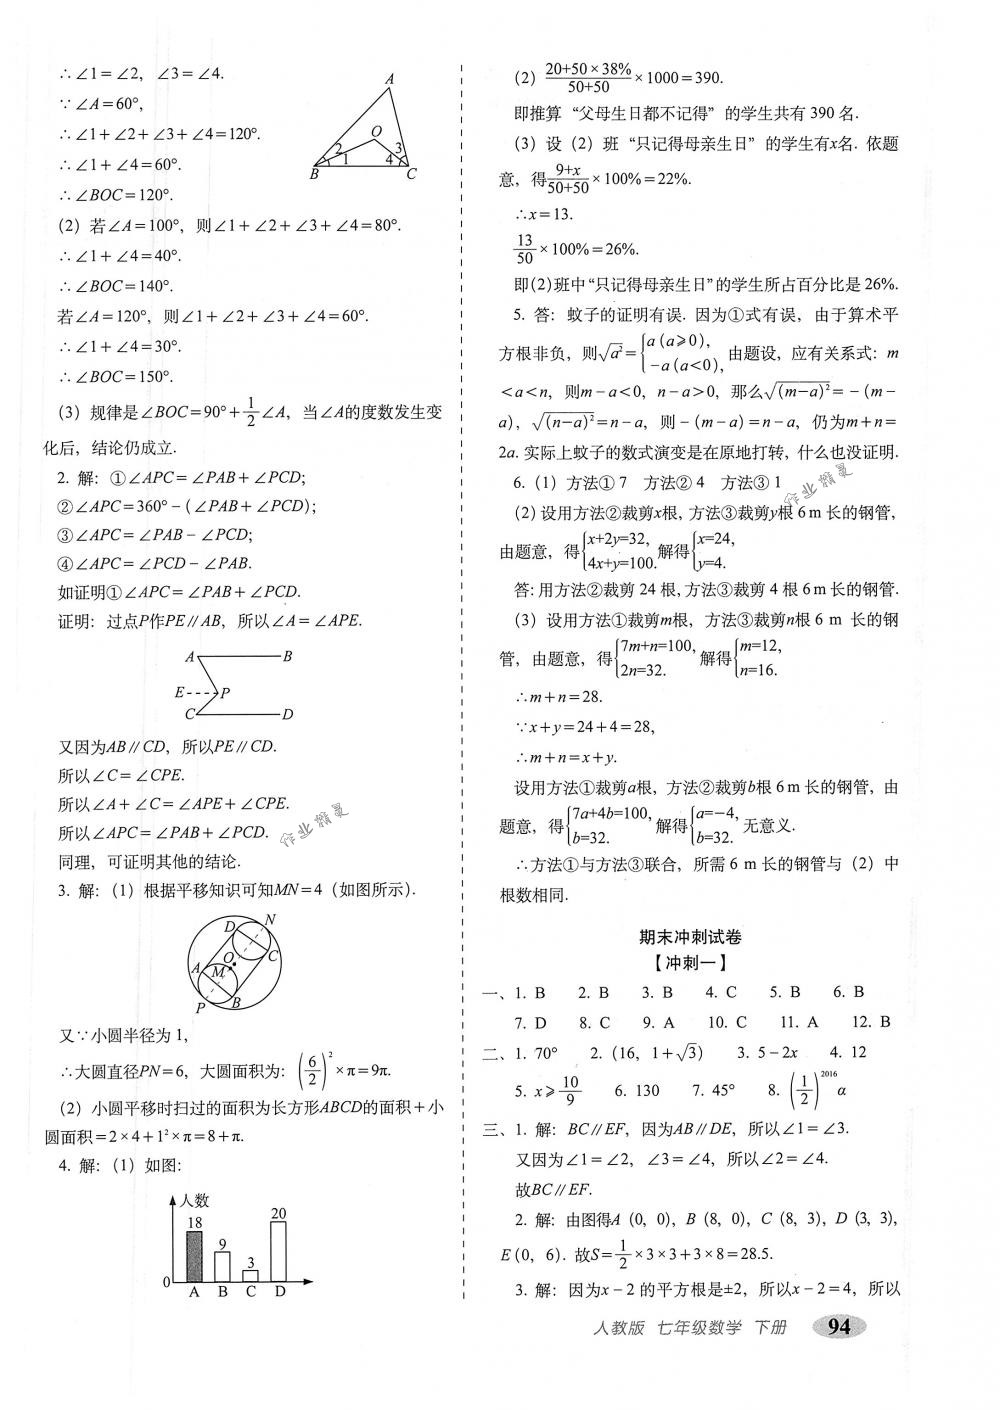 ∴∠1＝∠2，∠3＝∠4.
∵∠A＝60°，
∴∠1＋∠2＋∠3＋∠4＝120°.
∴∠1＋∠4＝60°.
∴∠BOC＝120°.
A
O
2
3
1
4
B
C
（2）若∠A＝100°，则∠1＋∠2＋∠3＋∠4＝80°.
∴∠1＋∠4＝40°.
∴∠BOC＝140°.
若∠A＝120°，则∠1＋∠2＋∠3＋∠4＝60°.
∴∠1＋∠4＝30°.
∴∠BOC＝150°.
（3）规律是∠BOC＝90°＋1/2∠A，当∠A的度数发生变
化后，结论仍成立.
2. 解：①∠APC＝∠PAB＋∠PCD；
②∠APC＝360°－（∠PAB＋∠PCD）；
③∠APC＝∠PAB－∠PCD；
④∠APC＝∠PCD－∠PAB.
如证明①∠APC＝∠PAB＋∠PCD.
证明：过点P作PE∥AB，所以∠A＝∠APE.
A B
E P
C D
又因为AB∥CD，所以PE∥CD.
所以∠C＝∠CPE.
所以∠A＋∠C＝∠APE＋∠CPE.
所以∠APC＝∠PAB＋∠PCD.
作业精灵
同理，可证明其他的结论.
3. 解：（1）根据平移知识可知MN＝4（如图所示）.
D N
O C
A M
P B
又∵小圆半径为1，
∴大圆直径PN＝6，大圆面积为：(6/2)²×π＝9π.
（2）小圆平移时扫过的面积为长方形ABCD的面积＋小
圆面积＝2×4＋1²×π＝8＋π.
4. 解：（1）如图：
人数
18
9
3
20
0
A B C D
（2）(20+50×38%)/(50+50)×1000＝390.
即推算“父母生日都不记得”的学生共有390名.
（3）设（2）班“只记得母亲生日”的学生有x名. 依题
意，得(9+x)/(50+50)×100%＝22%.
∴x＝13.
13/50×100%＝26%.
即（2）班中“只记得母亲生日”的学生所占百分比是26%.
5. 答：蚊子的证明有误. 因为①式有误，由于算术平
方根非负，则√a²＝{a（a⩾0），－a（a<0），由题设，应有关系式：m
＜a＜n，则m－a＜0，n－a＞0，那么√(m－a)²＝－（m－
a），√(n－a)²＝n－a，则－（m－a）＝n－a，仍为m＋n＝
2a. 实际上蚊子的数式演变是在原地打转，什么也没证明.
6.（1）方法①7　方法②4　方法③1
作业精灵
（2）设用方法②裁剪x根，方法③裁剪y根6 m长的钢管，
由题意，得{x+2y=32，4x+y=100.解得{x=24，y=4.
答：用方法②裁剪24根，方法③裁剪4根6 m长的钢管.
（3）设用方法①裁剪m根，方法③裁剪n根6 m 长的钢
管，由题意，得{7m+n=100，2n=32.解得{m=12，n=16.
∴m＋n＝28.
∵x＋y＝24＋4＝28，
∴m＋n＝x＋y.
设用方法①裁剪a根，方法②裁剪b根6 m长的钢管，由
题意，得{7a+4b=100，b=32.解得{a=－4，b=32.无意义.
∴方法①与方法③联合，所需6 m长的钢管与（2）中
根数相同.
期末冲刺试卷
【冲刺一】
一、1. B　2. B　3. B　4. C　5. B　6. B
7. D　8. C　9. A　10. C　11. A　12. B
二、1. 70°　2.（16，1＋√3）　3. 5－2x　4. 12
5. x⩾10/9　6. 130　7. 45°　8. (1/2)²⁰¹⁶α
三、1. 解：BC∥EF，因为AB∥DE，所以∠1＝∠3.
又因为∠1＝∠2，∠3＝∠4，所以∠2＝∠4.
故BC∥EF.
2. 解：由图得A（0，0），B（8，0），C（8，3），D（3，3），
E（0，6）. 故S＝1/2×3×3＋3×8＝28.5.
3. 解：因为x－2的平方根是±2，所以x－2＝4，所以
人教版 七年级数学 下册 94